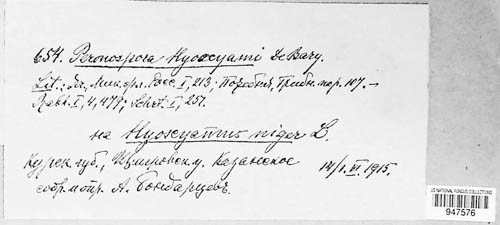 654. Peronospora Hyoscyami De Bary.
Lit.: Яч., Мик. фл. Росс. I, 213; Грибн. пар. 107. –
Rabh. I, 4, 477; Schröt. I, 251.
на Hyoscyamus niger L.
Курск. губ., у. Казанское 14/1. VI. 1915.
собр. А. Бондарцевъ.
US NATIONAL FUNGUS COLLECTIONS
947576